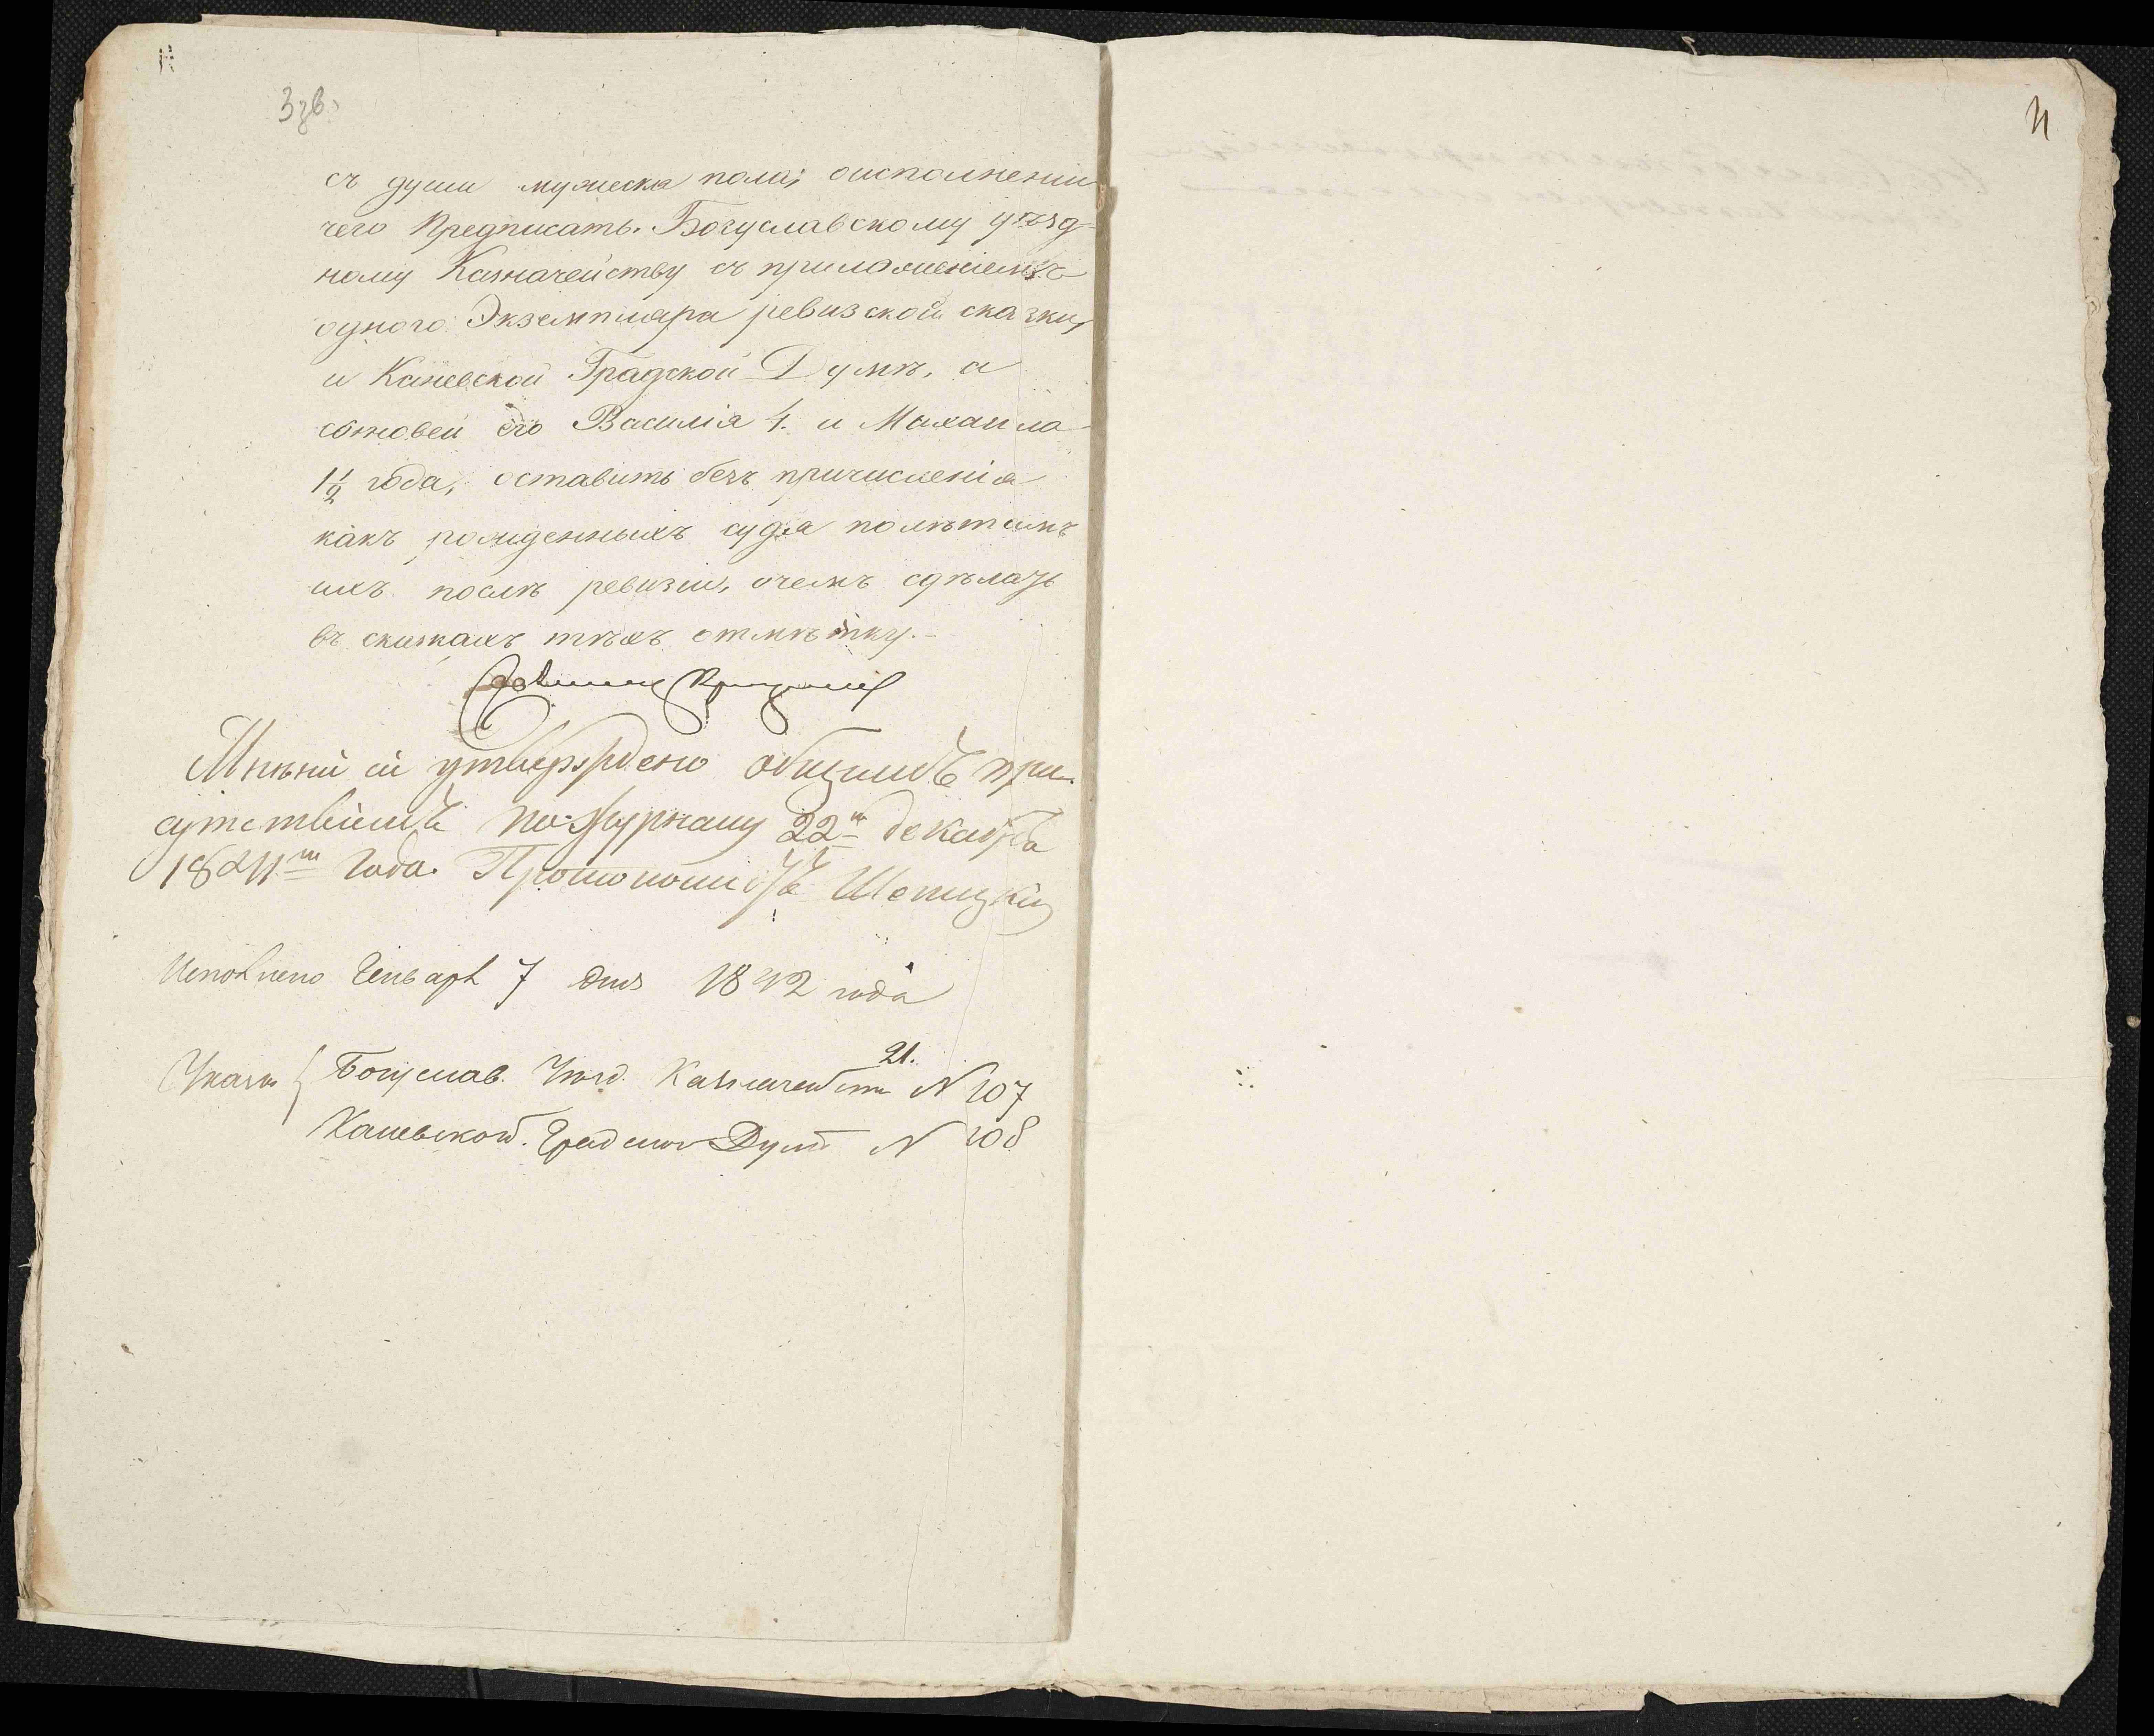 3зв.
съ души мужеска пола; оисполнении
чего Предписать. Богуславскому уѣзд-
ному Казначейству съ приложеніемъ
одного Экземпляра ревизской сказки,
и Каневской Градской Думѣ, а
сыновей его Василія 4. и Михаила
1½ года, оставить безъ причисленія
какъ рожденныхъ судя полѣтамъ
ихъ послѣ ревизіи, очемъ сдѣлать
въ сказкахъ тѣхъ отмѣтку.-
Мнѣніе сіе утверждено общимъ при-
сутствіемъ по журналу 22го декабря
1841го Года. Протоколистъ
Исполнено Генваря 7 дня 1842 года
21.
Указы { Богуслав. Уѣзд. Казначейству N 107
Каневской. Градской Думѣ N 108
4